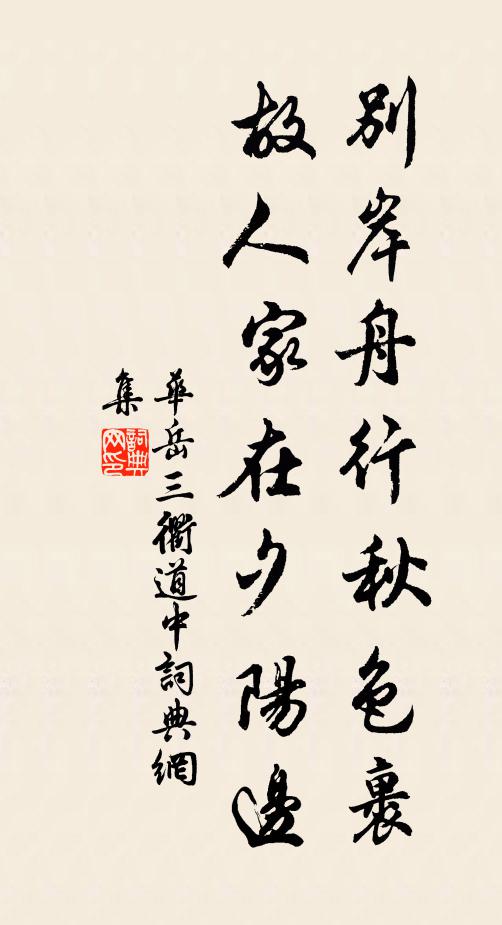 別岸舟行秋色裹
故人家在夕陽邊
華岳三衢道中詞典網
集
詞典
网印